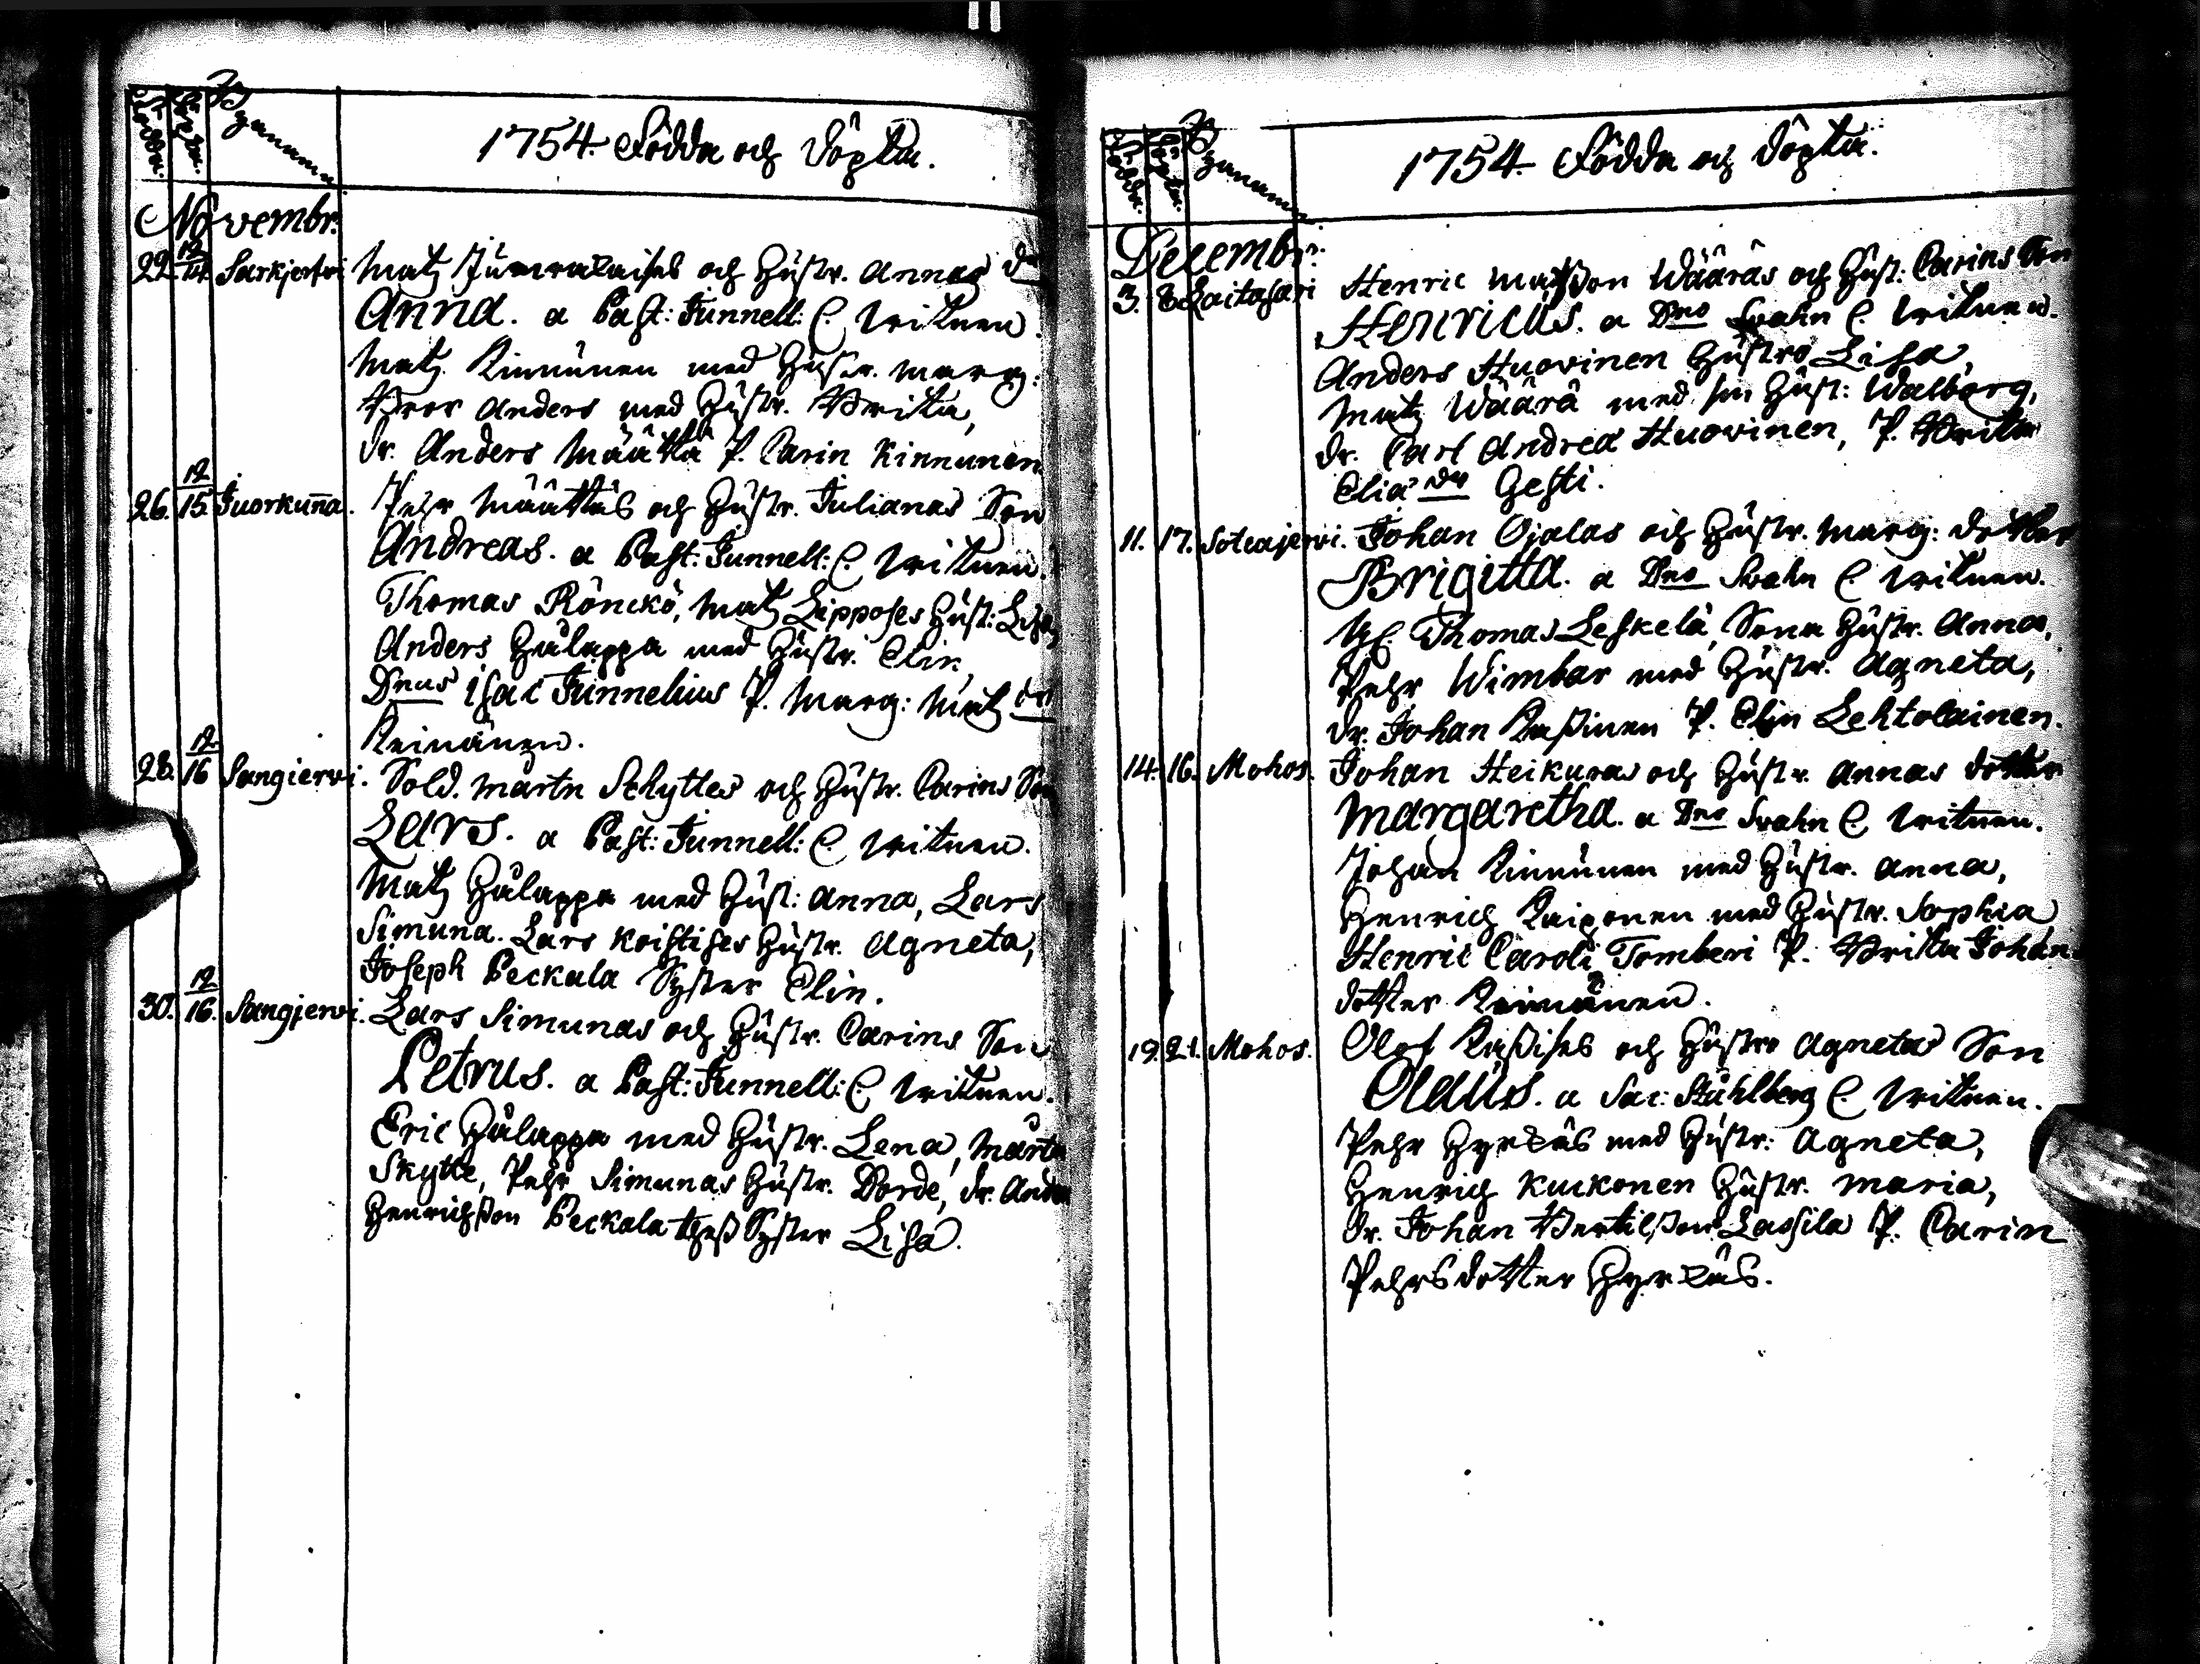 Födda. Döpta. Bynamn.
1754. Födda och Döpta.
Novembr:
22. 12/14. Sarkjerfvi Matz Jumalaises och Hustr. Annas dr
Anna. a Past: Junnell: C. Witnen.
Matz Kinnunen med Hustr. Marg:
Bror Anders med Hustr. Brita,
dr. Anders Määttä P. Carin Kinnunen
26. 12/15 Juorkuña. Pehr Määttäs och Hustr. Julianas Son
Andreas. a Past: Junnell: C. Witnen.
Thomas Rönckö, Matz Lipposes Hust: Lisa,
Anders Hulappa med Hustr. Elin,
Dnus Isac Junnelius P. Marg: Matz dr
Keinänen.
28. 12/16 Sangiervi. Sold. Martn Schyttes och Hustr. Carins Son
Lars. a Past: Junnell: C. Witnen.
Matz Hulappa med Hust: Anna, Lars
Simuna. Lars Koistises Hustr. Agneta,
Joseph Peckala Syster Elin.
30. 12/16. Sangjervi. Lars Simunas och Hustr. Carins Son
Petrus. a Past: Junnell: C. Witnen.
Eric Hulappa med Hustr. Lena, Mårtn
Skytte, Pehr Simunas Hustr. Borde, dr. Ander
Henrichsson Peckala thess Syster Lisa.
Födda. Döpta. Bynamn
1754. Födda och Döpta.
Decembr:
3. 8 Laitasari Henric Matsson Wääräs och Hust: Carins Son
Henricus. a Dno Svahn C. Witnen.
Anders Huovinen Hustro Lisa,
Matz Wäärä med sin Hust: Walborg,
dr. Carl Andreæ Huovinen, P. Brita
Eliæ dr Gesti.
11. 17. Soteajervi. Johan Ojalas och Hustr. Marg: dotter
Brigitta. a Dno Svahn C. Witnen.
Thomas Leskelä, Sona Hustr. Anna,
Pehr Wimbar med Hustr. Agneta,
dr. Johan Kassinen P. Elin Lehtolainen.
14. 16. Mohos. Johan Heikuras och Hustr. Annas dotter
Margaretha. a Dno Svahn C. Witnen.
Johan Kinnunen med Hustr. Anna,
Henrich Kaiponen med Hustr. Sophia
Henric Caroli Tomberi P. Brita Johan
dotter Keinänen.
19. 21. Mohos. Olof Kassises och Hustro Agneta Son
Olaus. a Sac: Ståhlberg C. Witnen.
Pehr Hyrkäs med Hustr: Agneta,
Henrich Kuckonen Hustr. Maria,
dr. Johan Bertilsson Lassila P. Carin
Pehrsdotter Hyrkäs.